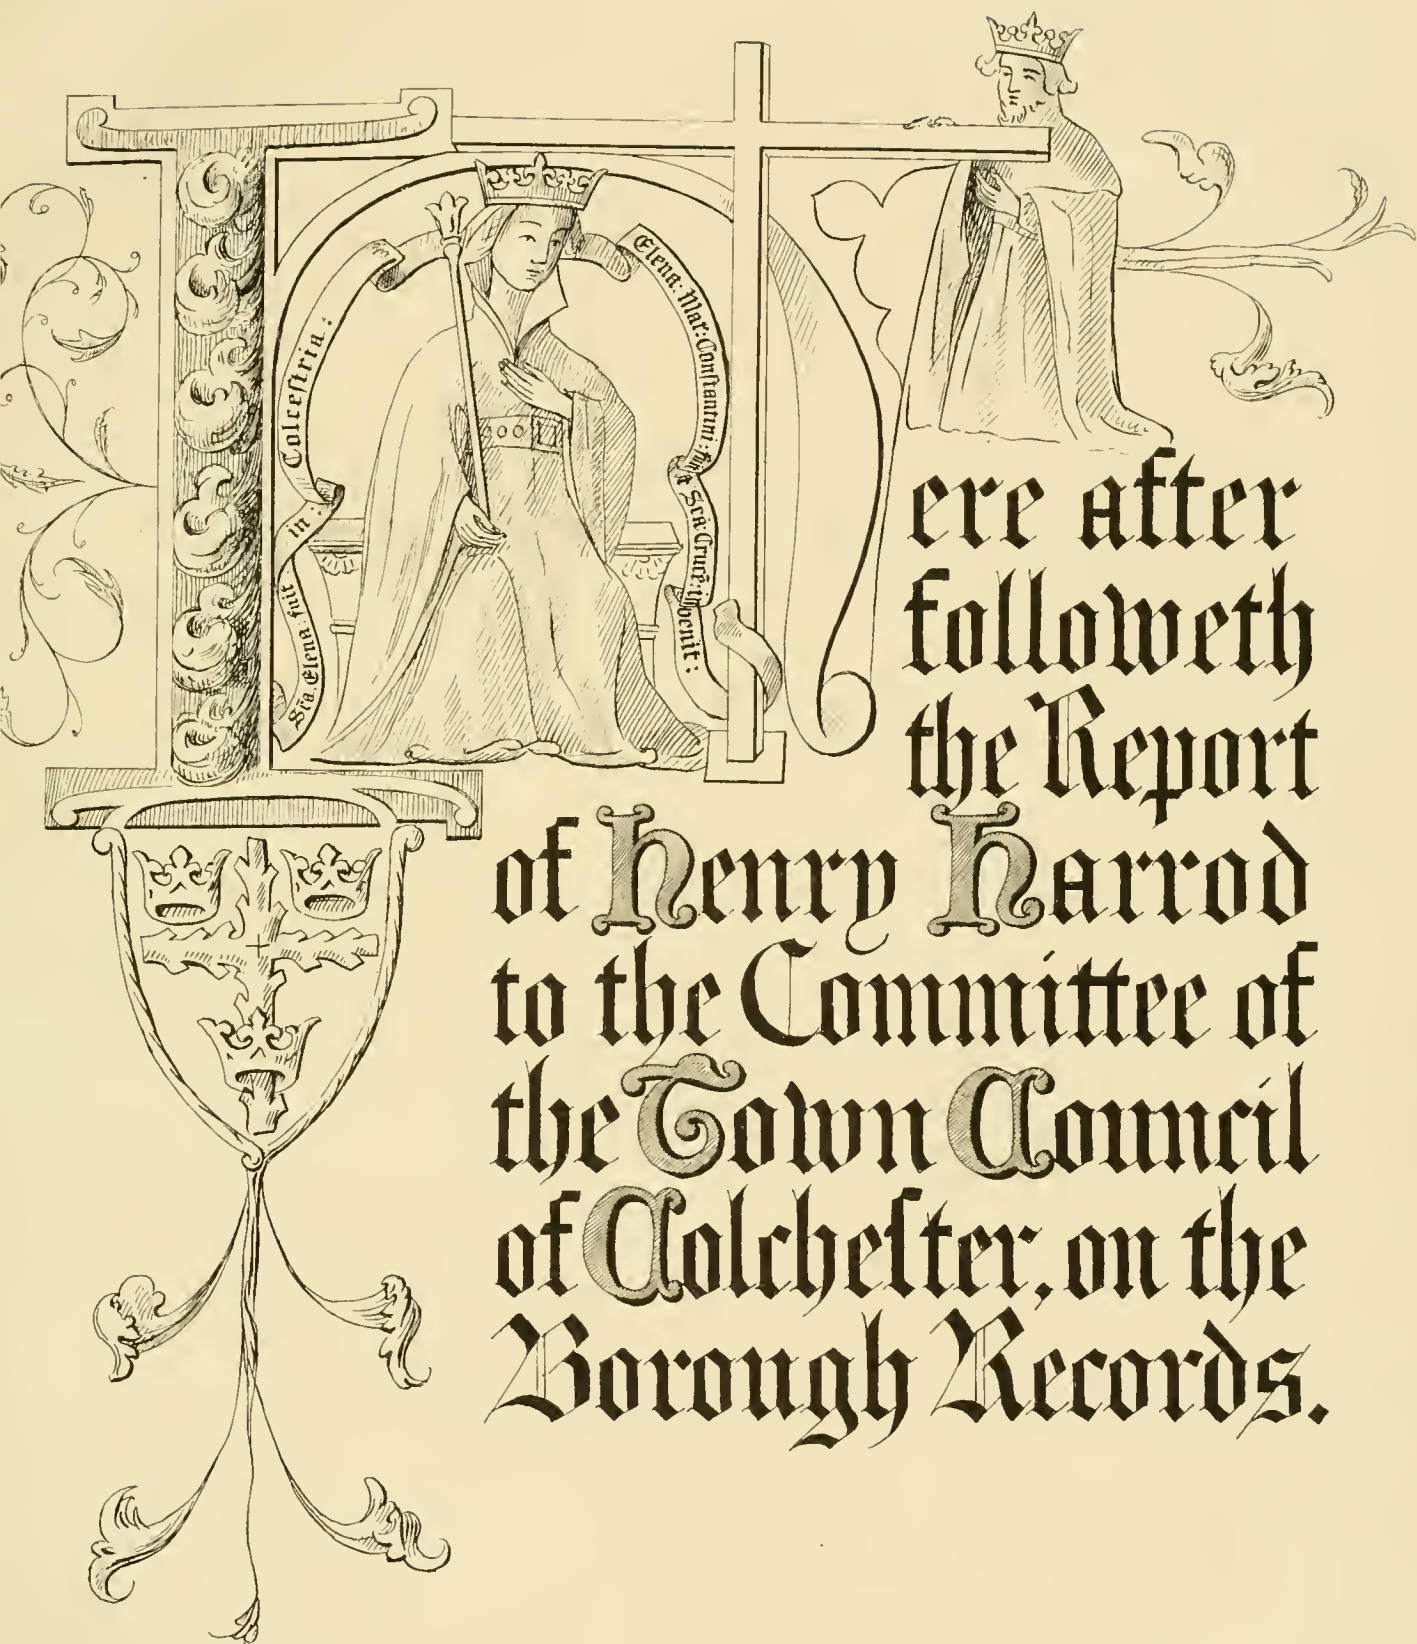 Sc̄a. Elena: fuit in: Colceſtria:
Elena: Mat: Conſtantini: Sc̄a: Crucē:
Here after
followeth
the Report
of Henry Harrod
to the Committee of
the Town Council
of Colcheſter, on the
Borough Records.